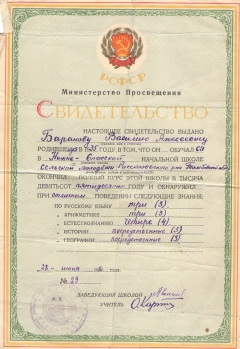 РСФСР
Министерство Просвещения
СВИДЕТЕЛЬСТВО
НАСТОЯЩЕЕ СВИДЕТЕЛЬСТВО ВЫДАНО
Баранову Василию
РОДИВШЕМУСЯ В 1935 ГОДУ, В ТОМ, ЧТО ОН ОБУЧАЛСЯ
В НАЧАЛЬНОЙ ШКОЛЕ
ОКОНЧИЛ ПОЛНЫЙ КУРС ЭТОЙ ШКОЛЫ В ТЫСЯЧА
ДЕВЯТЬСОТ пятидесятом ГОДУ И ОБНАРУЖИЛ
ПРИ отличном ПОВЕДЕНИИ СЛЕДУЮЩИЕ ЗНАНИЯ:
ПО РУССКОМУ ЯЗЫКУ три (3)
„ АРИФМЕТИКЕ три (3)
„ ЕСТЕСТВОЗНАНИЮ четыре (4)
„ ИСТОРИИ посредственно (3)
„ ГЕОГРАФИИ посредственно (3)
28 июня 50 ГОДА.
№ 29
ЗАВЕДУЮЩИЙ ШКОЛОЙ
М. П.
УЧИТЕЛЬ